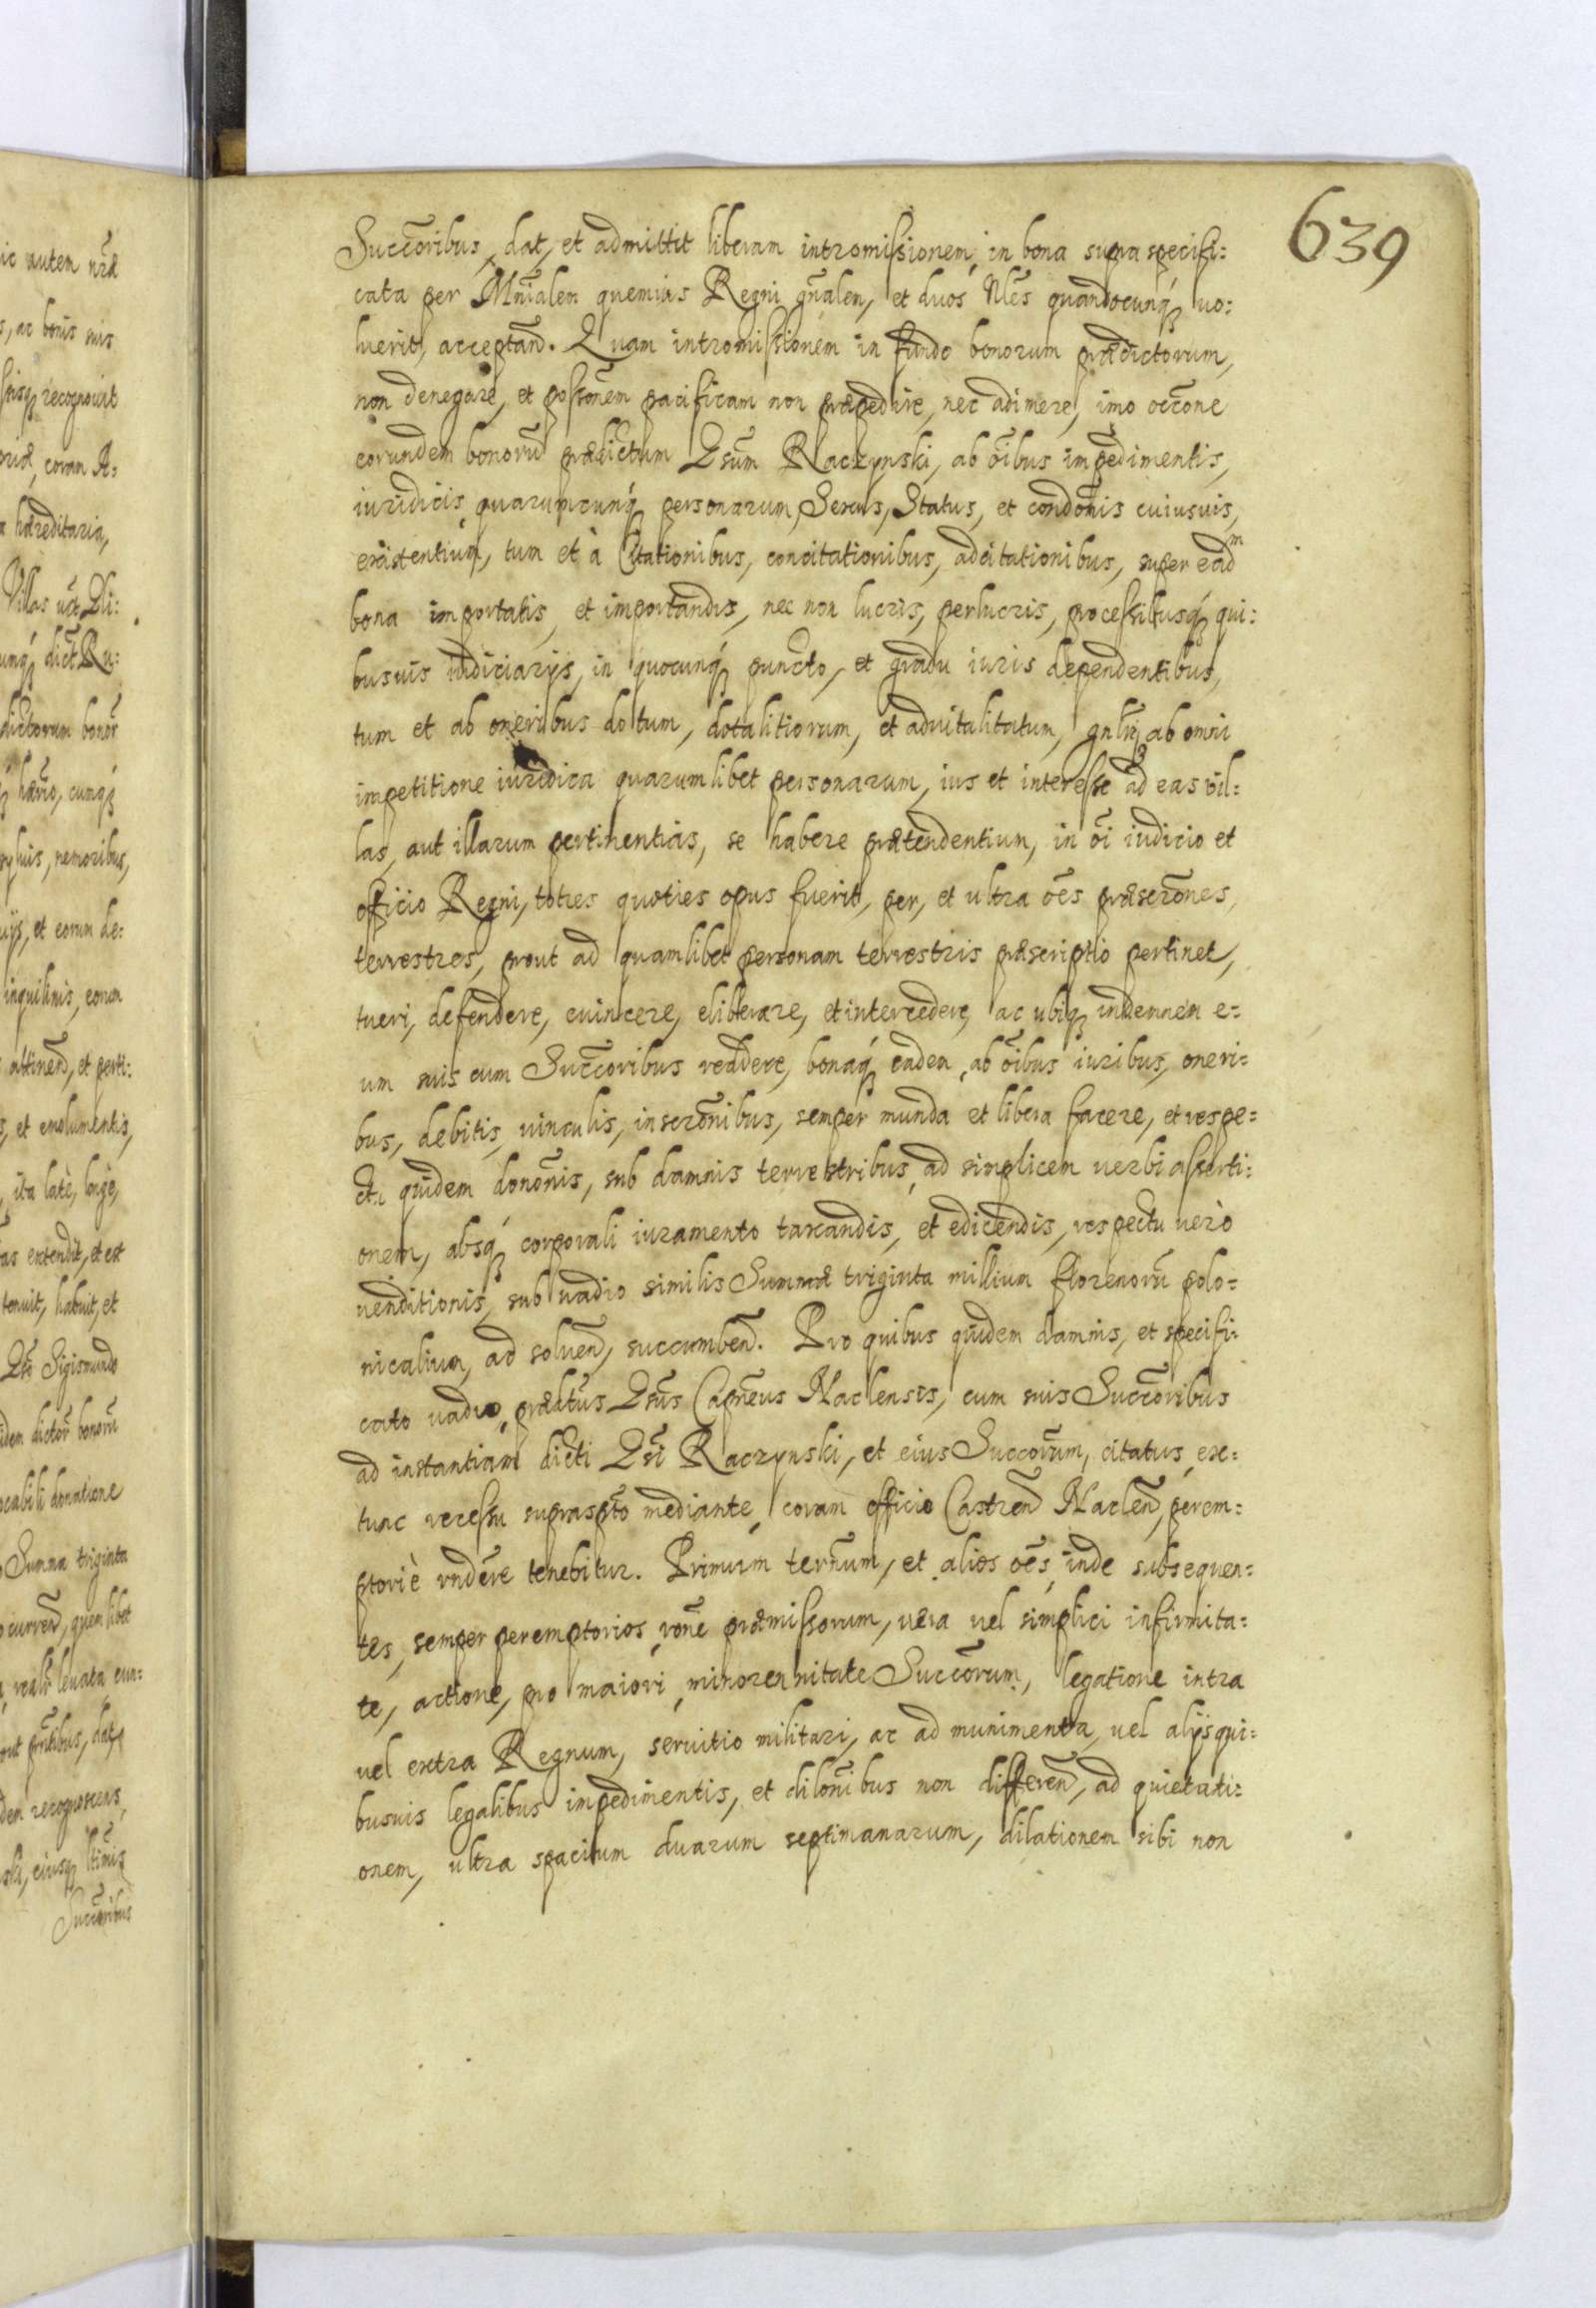 639
Succõribus, dat, et admittit liberam intromissionem, in bona supra specifi:
cata per Mñialem quemius Regni gñalem, et duos Nles quandocunq́ uo:
luerit, acceptand̃. Quam intromissionem in fundo bonorum prædictorum,
non denegare, et possõnem pacificam non præpedire, nec adimere, imo occõne
eorundem bonorũ prædictum Gsũm Raczynski, ab õibus impedimentis,
iuridicis quarumcunq́ personarum, Sexus, Status, et condõnis cuiusuis,
existentium, tum et à Citationibus, concitationibus, adcitationibus, super ead̃m
bona importatis, et importandis, nec non lucris, perlucris, processibusq́ qui:
busuis iudiciarijs, in quocunq́ puncto, et gradu iuris dependentibus,
tum et ab oneribus dotum, dotalitiorum, et aduitalitatum, gnlr̃ ab omni
impetitione iuridica quarumlibet personarum, ius et interesse ad eas vil:
las, aut illarum pertinentias, se habere prætendentium, in õi iudicio et
officio Regni, toties quoties opus fuerit, per, et ultra oẽs præscrõnes,
terrestres, prout ad quamlibet personam terrestris præscriptio pertinet,
tueri, defendere, euincere, eliberare, et intercedere, ac ubiq́ indemnem e:
um suis cum Succõribus reddere, bonaq́ eadem, ab õibus iuribus, oneri:
bus, debitis, vinculis, inscrõnibus, semper munda et libera facere, et respe:
ctu quidem donõnis, sub damnis terrestribus, ad simplicem uerbi asserti:
onem, absq́ corporali iuramento taxandis, et edicendis, respectu uerò
uenditionis, sub uadio similis Summæ triginta millium florenorũ polo:
nicalium, ad soluend̃, succumbend̃. Pro quibus quidem damnis, et specifi:
cato uadio, prædtũs Gsũs Capñeus Naclensis, cum suis Succõribus
ad instantiam dicti Gsi Raczynski, et eius Succorũm, citatus, ex:
tunc recessu supraspto mediante, coram officio Castren̄ Naclen̄, perem:
ptoriè rnd̃ere tenebitur. Primum ternũm, et alios oẽs, inde subsequen:
tes, semper peremptorios, rõne præmissorum, uera uel simplici infirmita:
te, actione, pro maiori, minorennitate Succõrum, legatione intra
uel extra Regnum, seruitio militari, ac ad munimenta, uel alijsqui:
busuis legalibus impedimentis, et dilõnibus non differen̄, ad quietati:
onem, ultra spacium duarum septimanarum, dilationem sibi non